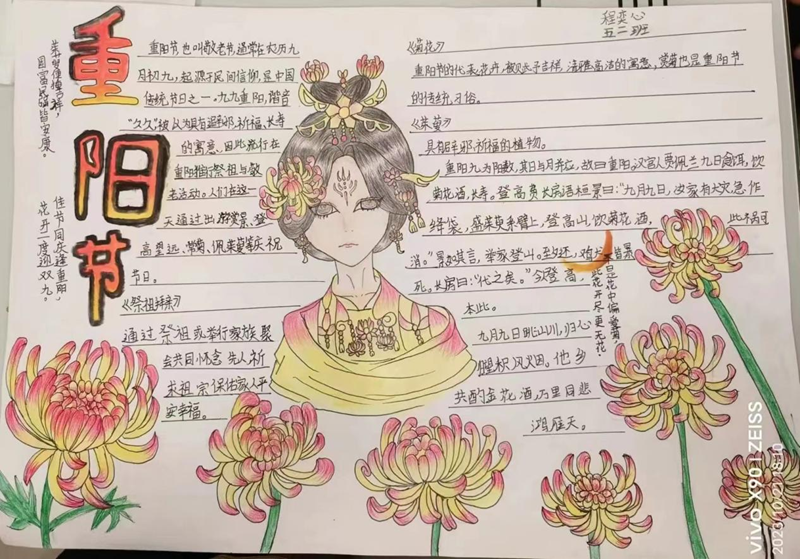 重阳节
程奕心
五二班
国富民强皆安康。
佳节同庆逢重阳,
花开一度迎双九。
重阳节也叫敬老节,通常在农历九
月初九,起源于民间信仰,是中国
传统节日之一。九九重阳,谐音
"久久"被认为具有避邪、祈福、长寿
的寓意,因此流行在
重阳节祭祖与敬
老活动。人们在这一
天通过出游赏景、登
高望远、赏菊、佩茱萸等庆祝
节日。
《祭祖拜亲》
通过祭祖或举行家族聚
会共同怀念先人祈
求祖宗保佑家人平
安幸福。
《菊花》
重阳节的代表花卉,被赋予吉祥、清雅高洁的寓意,赏菊也是重阳节
的传统习俗。
《茱萸》
具有辟邪、祈福的植物。
重阳九为阳数,其日与月并应,故曰重阳。汉宫人贾佩兰九日食饵,饮
菊花酒,长寿。登高费长房语桓景曰:"九月九日,汝家有大灾,急作
绛袋,盛茱萸系臂上,登高山,饮菊花酒, 此祸可
消。"景如其言,举家登山。
死。长房曰:"代之矣。"今登高,
本此。
是花中偏爱菊,
此花开尽更无花!
九月九日眺山川,归心
归望积风烟。他乡
共酌金花酒,万里同悲
鸿雁天。
vivo X90 | ZEISS
2023/10/21 18:10